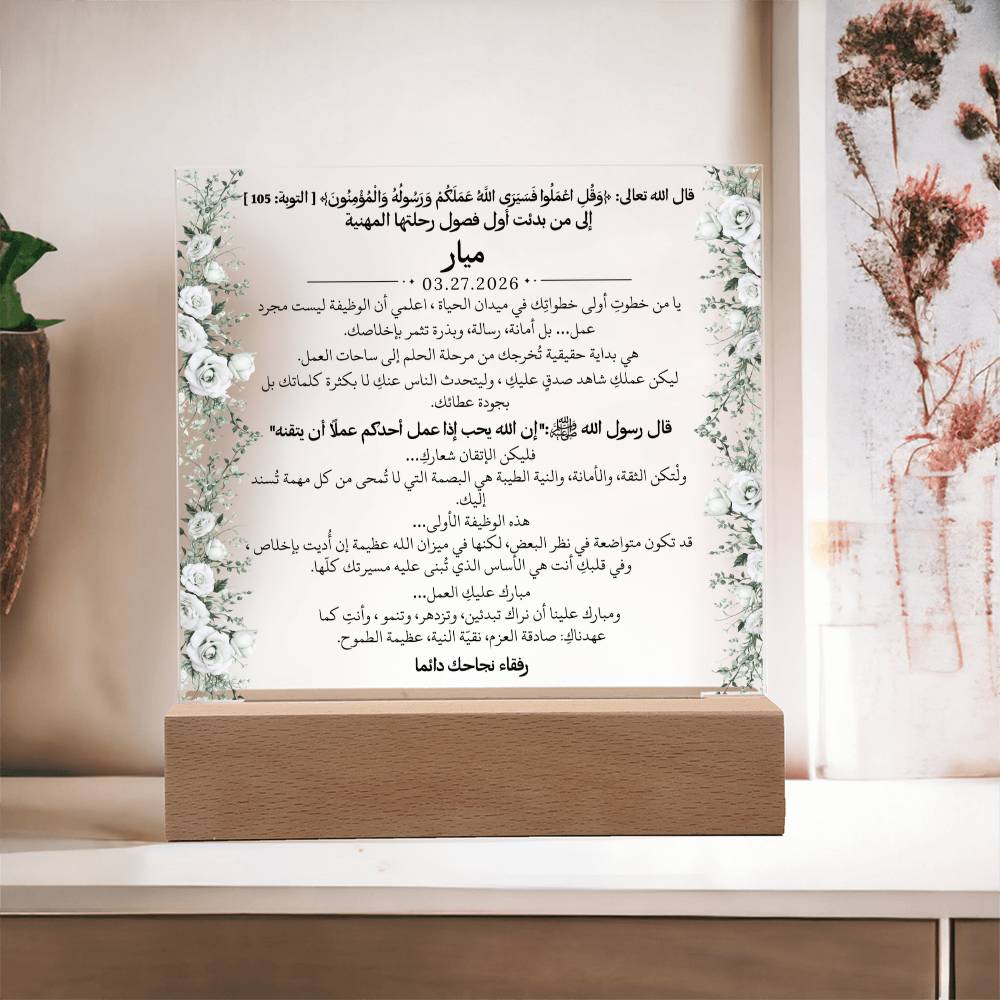 قال الله تعالى: ﴿وَقُلِ اعْمَلُوا فَسَيَرَى اللَّهُ عَمَلَكُمْ وَرَسُولُهُ وَالْمُؤْمِنُونَ﴾ [ التوبة: 105 ]
إلى من بدئت أول فصول رحلتها المهنية
ميار
03.27.2026
يا من خطوتِ أولى خطواتِك في ميدان الحياة ، اعلمي أن الوظيفة ليست مجرد
عمل... بل أمانة، رسالة، وبذرة تثمر بإخلاصك.
هي بداية حقيقية تُخرجك من مرحلة الحلم إلى ساحات العمل.
ليكن عملكِ شاهد صدقٍ عليكِ ، وليتحدث الناس عنكِ لا بكثرة كلماتك بل
بجودة عطائك.
قال رسول الله ﷺ:"إن الله يحب إذا عمل أحدكم عملًا أن يتقنه"
فليكن الإتقان شعاركِ...
ولْتكن الثقة، والأمانة، والنية الطيبة هي البصمة التي لا تُمحى من كل مهمة تُسند
إلَيك.
هذه الوظيفة الأولى...
قد تكون متواضعة في نظر البعض، لكنها في ميزان الله عظيمة إن أُديت بإخلاص ،
وفي قلبكِ أنت هي الأساس الذي تُبنى عليه مسيرتك كلّها.
مبارك عليكِ العمل...
ومبارك علينا أن نراك تبدئين، وتزدهر، وتنمو ، وأنتِ كما
عهدناكِ: صادقة العزم، نقيّة النية، عظيمة الطموح.
رفقاء نجاحك دائما